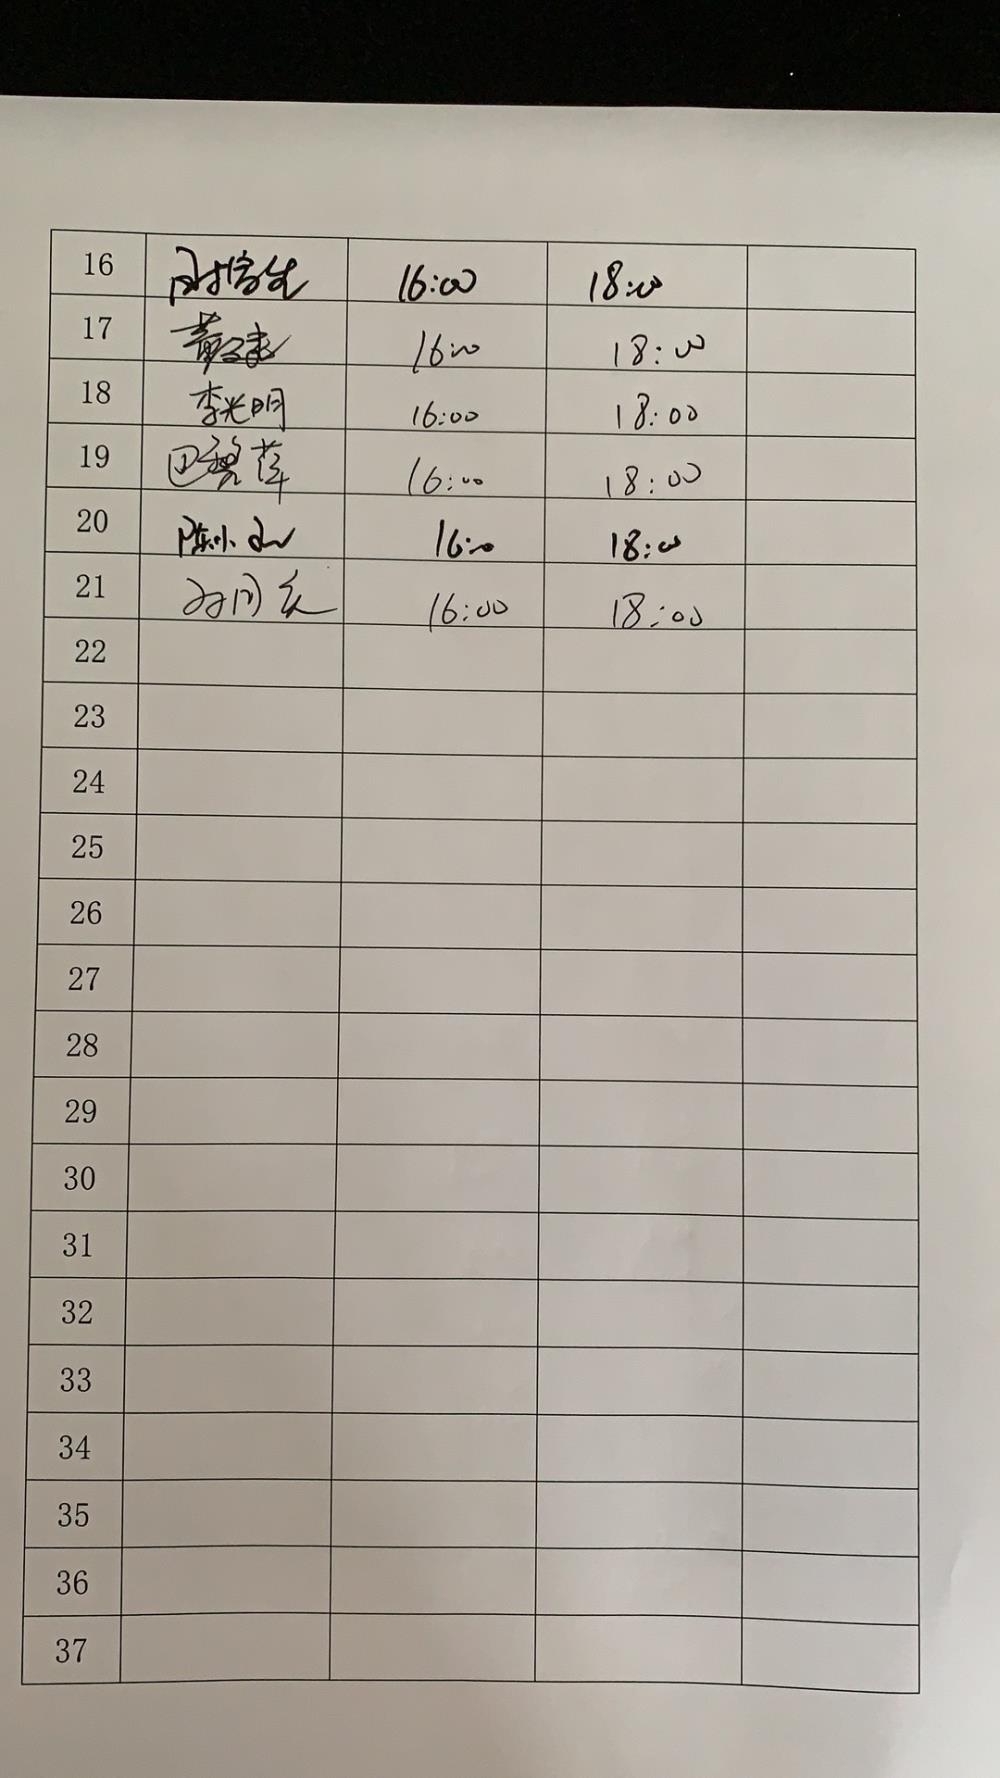 16 16:00 18:00
17 16:00 18:00
18 李光明 16:00 18:00
19 16:00 18:00
20 陈小 16:00 18:00
21 16:00 18:00
22
23
24
25
26
27
28
29
30
31
32
33
34
35
36
37